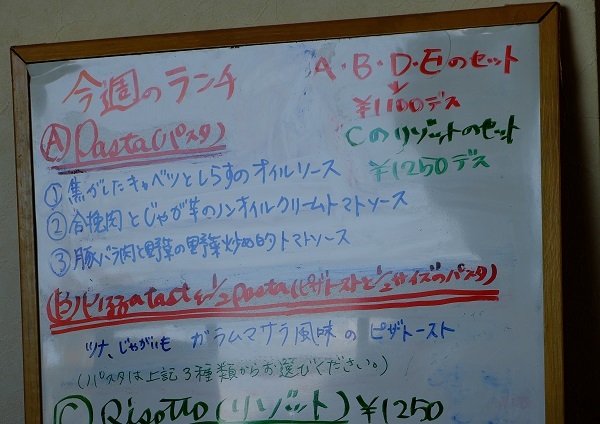 今週のランチ
A・B・D・Eのセット
¥1100デス
Cのリゾットのセット
¥1250デス
Ⓐ Pasta(パスタ)
① 焦がしたキャベツとしらすのオイルソース
② 合挽肉とじゃが芋のノンオイルクリームトマトソース
③ 豚バラ肉と野菜の野菜炒め的トマトソース
Ⓑ 1/2 pasta(ピザトーストと1/2サイズのパスタ)
ツナ、じゃがいも ガラムマサラ風味のピザトースト
(パスタは上記3種類からお選びください。)
Ⓒ Risotto(リゾット)¥1250